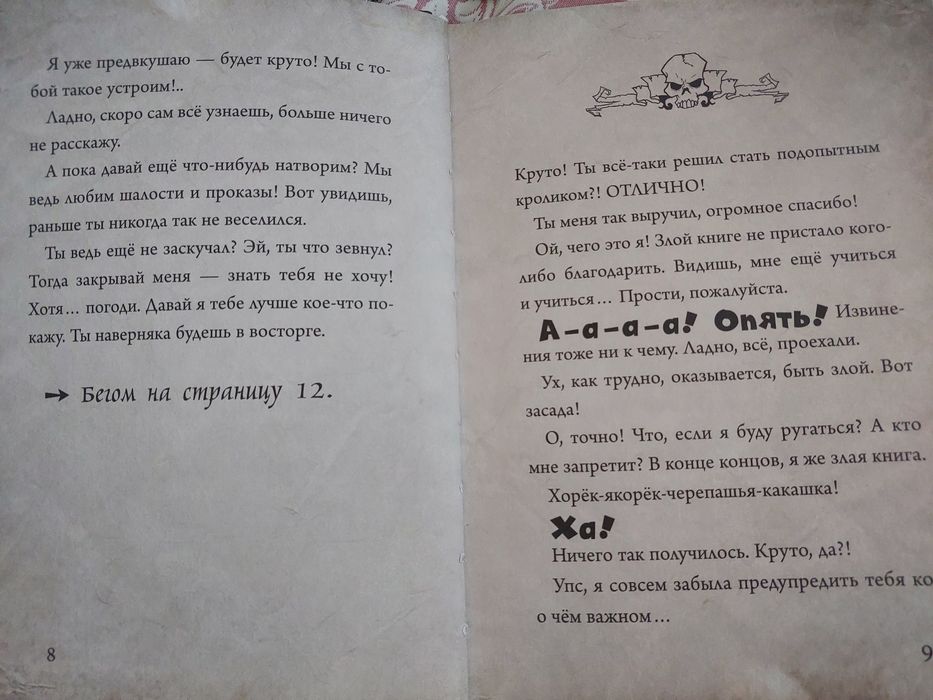 Я уже предвкушаю — будет круто! Мы с то-
бой такое устроим!..
Ладно, скоро сам всё узнаешь, больше ничего
не расскажу.
А пока давай ещё что-нибудь натворим? Мы
ведь любим шалости и проказы! Вот увидишь,
раньше ты никогда так не веселился.
Ты ведь ещё не заскучал? Эй, ты что зевнул?
Тогда закрывай меня — знать тебя не хочу!
Хотя... погоди. Давай я тебе лучше кое-что по-
кажу. Ты наверняка будешь в восторге.
→ Бегом на страницу 12.
8
Круто! Ты всё-таки решил стать подопытным
кроликом?! ОТЛИЧНО!
Ты меня так выручил, огромное спасибо!
Ой, чего это я! Злой книге не пристало кого-
либо благодарить. Видишь, мне ещё учиться
и учиться... Прости, пожалуйста.
А-а-а-а! Опять! Извине-
ния тоже ни к чему. Ладно, всё, проехали.
Ух, как трудно, оказывается, быть злой. Вот
засада!
О, точно! Что, если я буду ругаться? А кто
мне запретит? В конце концов, я же злая книга.
Хорёк-якорёк-черепашья-какашка!
Ха!
Ничего так получилось. Круто, да?!
Упс, я совсем забыла предупредить тебя ко
о чём важном...
9